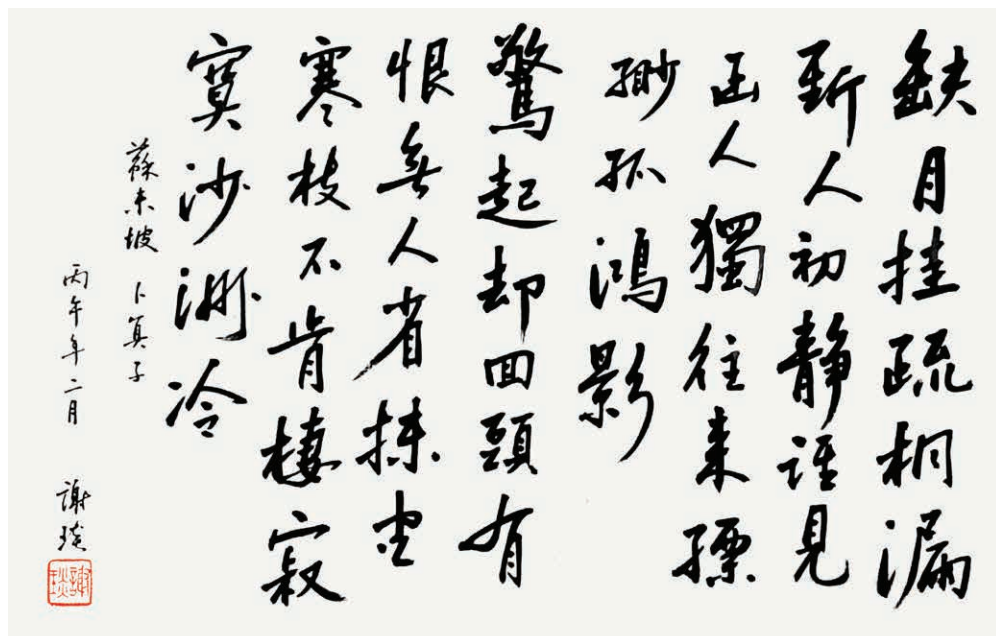 缺月挂疏桐漏
断人初静誰見
幽人獨往来縹
緲孤鴻影
驚起却回頭有
恨無人省揀盡
寒枝不肯棲寂
寞沙洲冷
蘇東坡 卜算子
丙午年二月 謝琰
謝琰